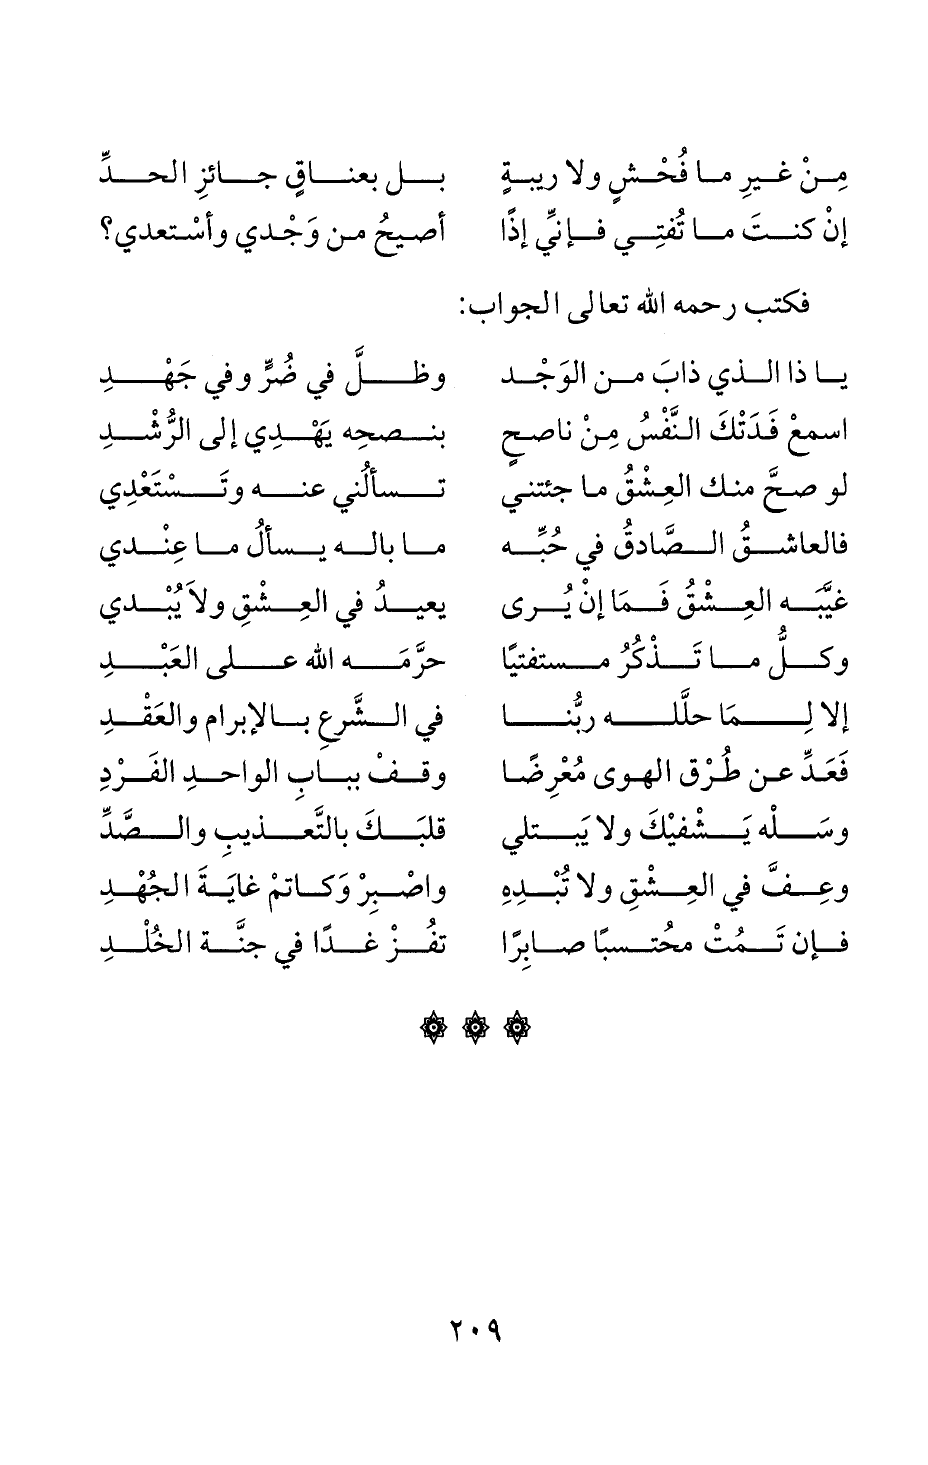 مِنْ غيرِ ما فُحْشٍ ولا ريبةٍ بل بعناقٍ جائزِ الحدِّ
إنْ كنتَ ما تُفتِي فإنِّي إذًا أصيحُ من وَجْدي وأسْتعدي؟
فكتب رحمه الله تعالى الجواب:
يا ذا الذي ذابَ من الوَجْد وظلَّ في ضُرٍّ وفي جَهْدِ
اسمعْ فَدَتْكَ النَّفْسُ مِنْ ناصحٍ بنصحه يَهْدِي إلى الرُّشْدِ
لو صحَّ منك العِشْقُ ما جئتني تسألُني عنه وتَسْتَعْدِي
فالعاشقُ الصَّادقُ في حُبِّه ما باله يسألُ ما عِنْدي
غيَّبه العِشْقُ فَمَا إنْ يُرى يعيدُ في العِشْقِ ولاَ يُبْدي
وكلُّ ما تَذْكُرُ مستفتيًا حرَّمَه الله على العَبْدِ
إلا لِمَا حلَّله ربُّنا في الشَّرعِ بالإبرام والعَقْدِ
فَعَدِّ عن طُرْق الهوى مُعْرِضًا وقفْ ببابِ الواحدِ الفَرْدِ
وسَلْه يَشْفيْكَ ولا يَبْتلي قلبَكَ بالتَّعْذيبِ والصَّدِّ
وعِفَّ في العِشْقِ ولا تُبْدِهِ واصْبِرْ وَكاتمْ غايَةَ الجُهْدِ
فإن تَمُتْ محتسبًا صابِرًا تفُزْ غدًا في جنَّة الخُلْدِ
٢٠٩